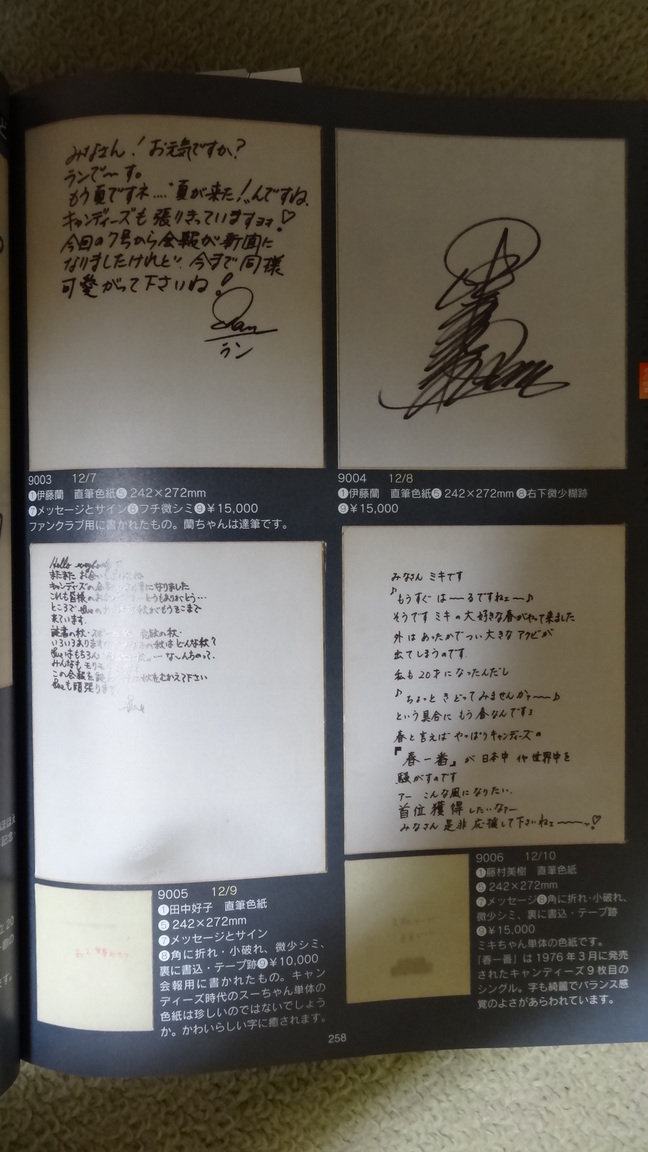 みなさん! お元気ですか?
ランで〜す。
もう夏ですネ....“夏が来た!”んですね、
キャンディーズも張りきっていますョォ♡
今回の7号から会報が新聞に
なりましたけれど、今まで同様
可愛がって下さいね!
Ran
ラン
9003 12/7
❶伊藤蘭 直筆色紙❺242×272mm
❼メッセージとサイン❽フチ微シミ❾¥15,000
ファンクラブ用に書かれたもの。蘭ちゃんは達筆です。
9004 12/8
❶伊藤蘭 直筆色紙❺242×272mm❽右下微少糊跡
❾¥15,000
Hello
またまた お会い
キャンディーズの になりました
これも皆様の とうもありがとう…
ところで もうそこまで
来ています.
読者の秋・ 秋・
いろいろあります の秋はどんな秋?
はもちろん な〜んちゃって.
みんなも
この会報を 秋をむかえて下さい
も頑張ります
みなさん ミキです
♪もうすぐ は〜るですねェ〜♪
そうです ミキの大好きな春がやって来ました
外は あったかでつい大きな アクビが
出てしまうのです.
私も20才になったんだし
♪ちょっと きどってみませんかァ〜〜♪
という具合に もう春なんです!
春と言えば やっぱりキャンディーズの
『春一番』が 日本中 イヤ世界中を
騒がすのです
アー こんな風になりたい.
首位獲得したいなァー
みなさん 是非 応援して下さいねェ〜〜〜♡
9005 12/9
❶田中好子 直筆色紙
❺242×272mm
❼メッセージとサイン
❽角に折れ・小破れ、微少シミ、
裏に書込・テープ跡❾¥10,000
会報用に書かれたもの。キャン
ディーズ時代のスーちゃん単体の
色紙は珍しいのではないでしょう
か。かわいらしい字に癒されます。
9006 12/10
❶藤村美樹 直筆色紙
❺242×272mm
❼メッセージ❽角に折れ・小破れ、
微少シミ、裏に書込・テープ跡
❾¥15,000
ミキちゃん単体の色紙です。
『春一番』は1976年3月に発売
されたキャンディーズ9枚目の
シングル。字も綺麗でバランス感
覚のよさがあらわれています。
258